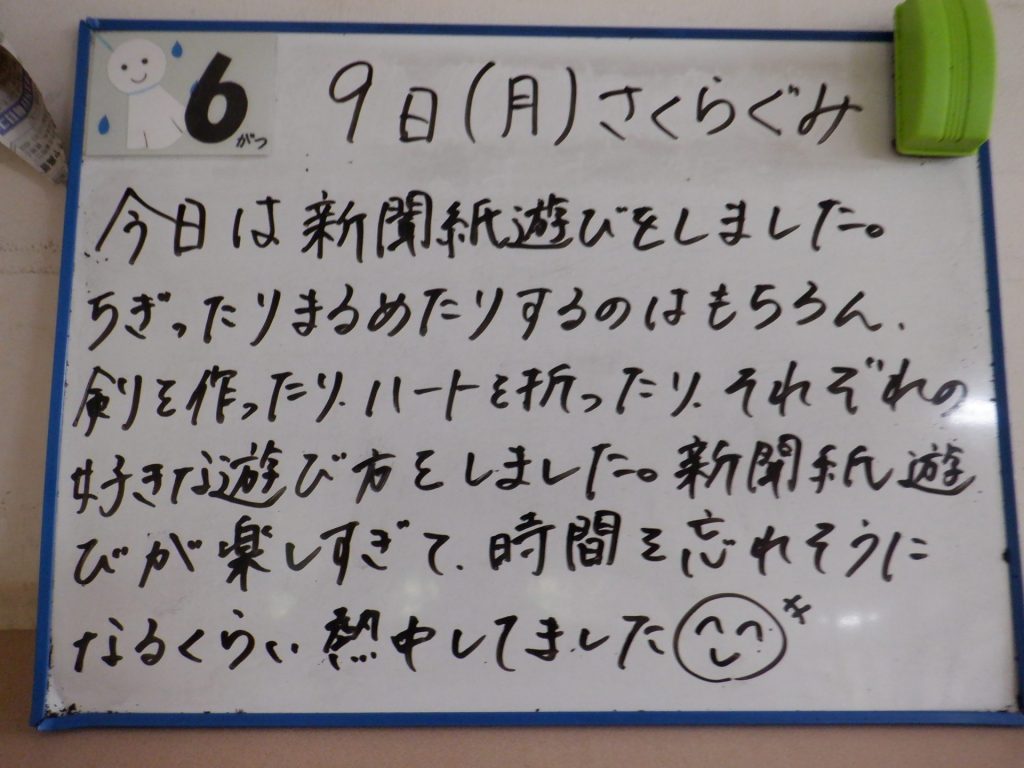 6がつ 9日(月)さくらぐみ
今日は新聞紙遊びをしました。
ちぎったりまるめたりするのはもちろん、
剣を作ったり、ハートを折ったり、それぞれの
好きな遊び方をしました。新聞紙遊
びが楽しすぎて、時間を忘れそうに
なるくらい熱中してました